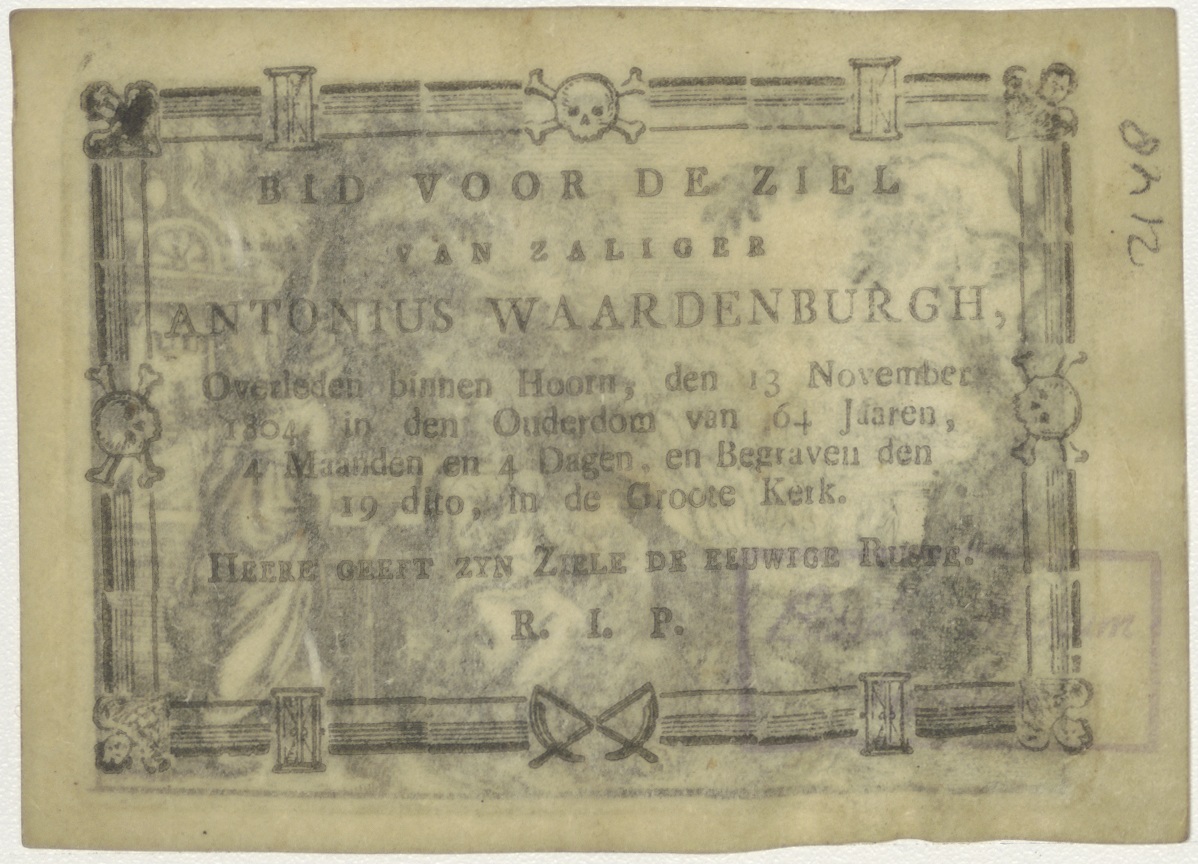 BID VOOR DE ZIEL
VAN ZALIGER
ANTONIUS WAARDENBURGH,
Overleden binnen Hoorn, den 13 November
1804 in den Ouderdom van 64 Jaaren,
4 Maanden en 4 Dagen, en Begraven den
19 dito, in de Groote Kerk.
HEERE GEEFT ZYN ZIELE DE EEUWIGE RUSTE!
R. I. P.